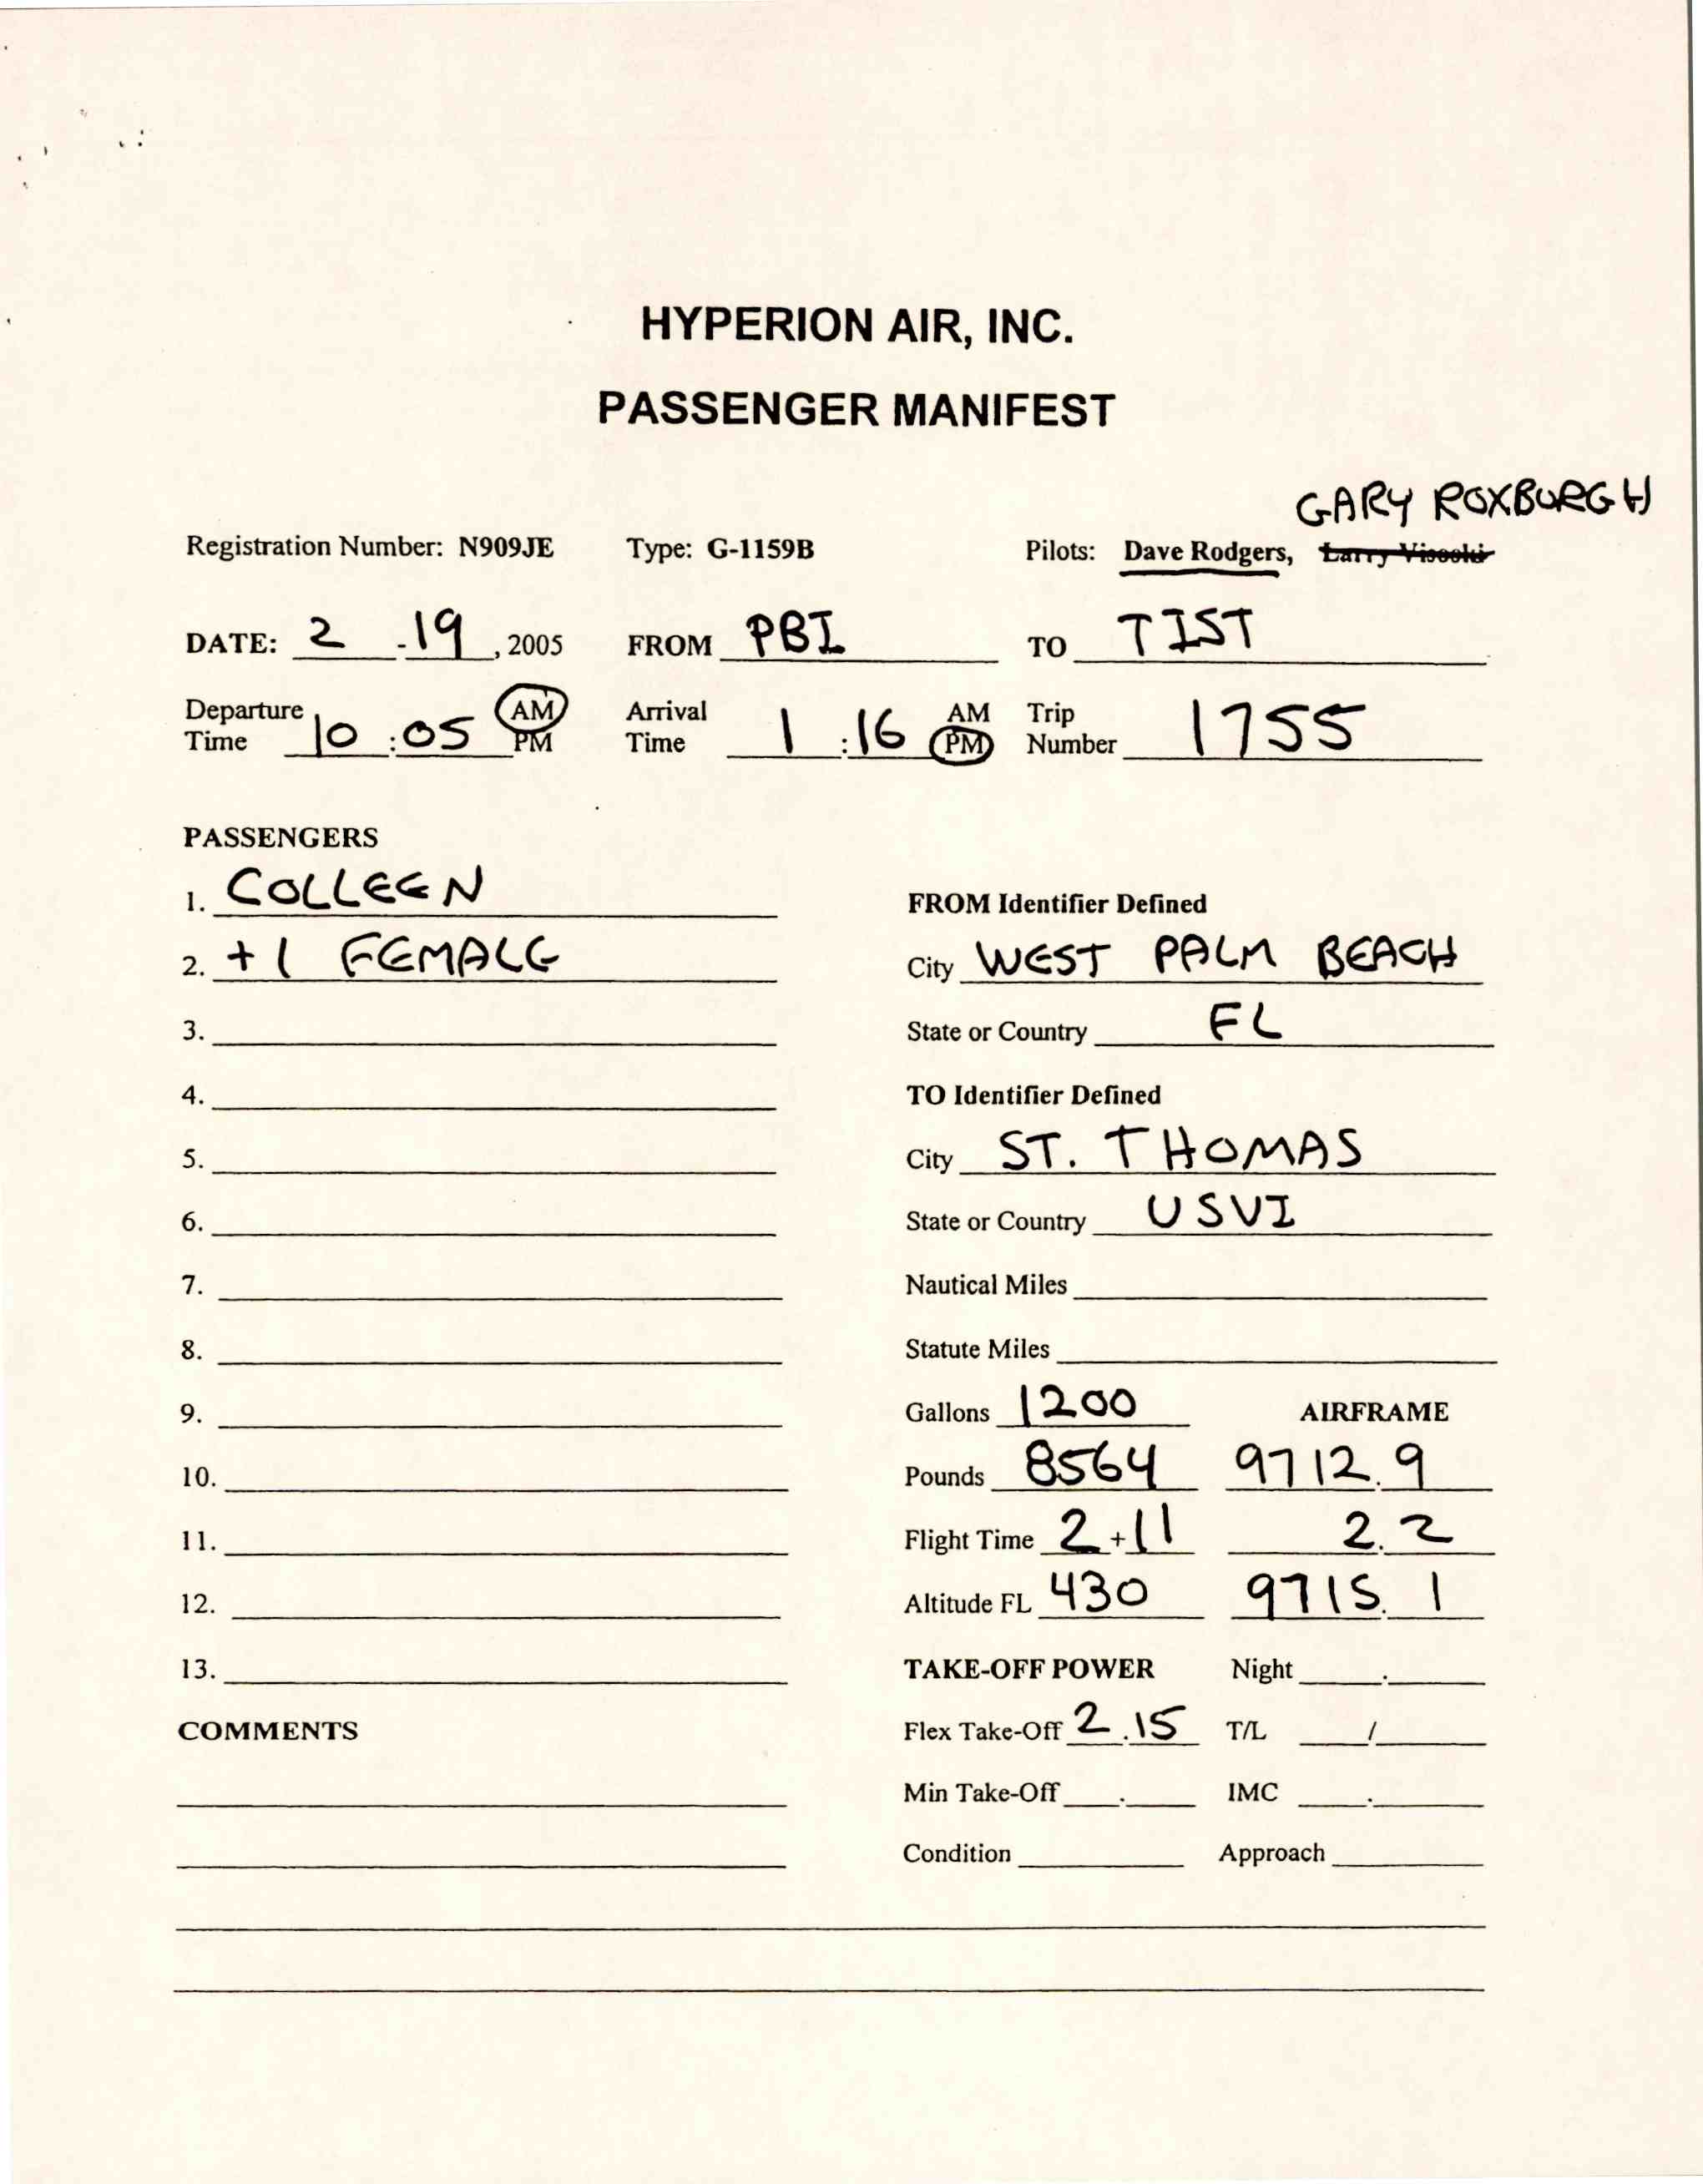 HYPERION AIR, INC.
PASSENGER MANIFEST
GARY ROXBURGH
Registration Number: N909JE Type: G-1159B Pilots: Dave Rodgers, Larry Visoski
DATE: 2 - 19, 2005 FROM PBI TO TIST
Departure Time 10:05 AM PM Arrival Time 1:16 AM PM Trip Number 1755
PASSENGERS
1. COLLEEN
FROM Identifier Defined
2. +1 FEMALE
City WEST PALM BEACH
3.
State or Country FL
4.
TO Identifier Defined
5.
City ST. THOMAS
6.
State or Country USVI
7.
Nautical Miles
8.
Statute Miles
9.
Gallons 1200 AIRFRAME
10.
Pounds 8564 9712.9
11.
Flight Time 2+11 2.2
12.
Altitude FL 430 9715.1
13.
TAKE-OFF POWER Night .
COMMENTS
Flex Take-Off 2.15 T/L /
Min Take-Off . IMC .
Condition Approach